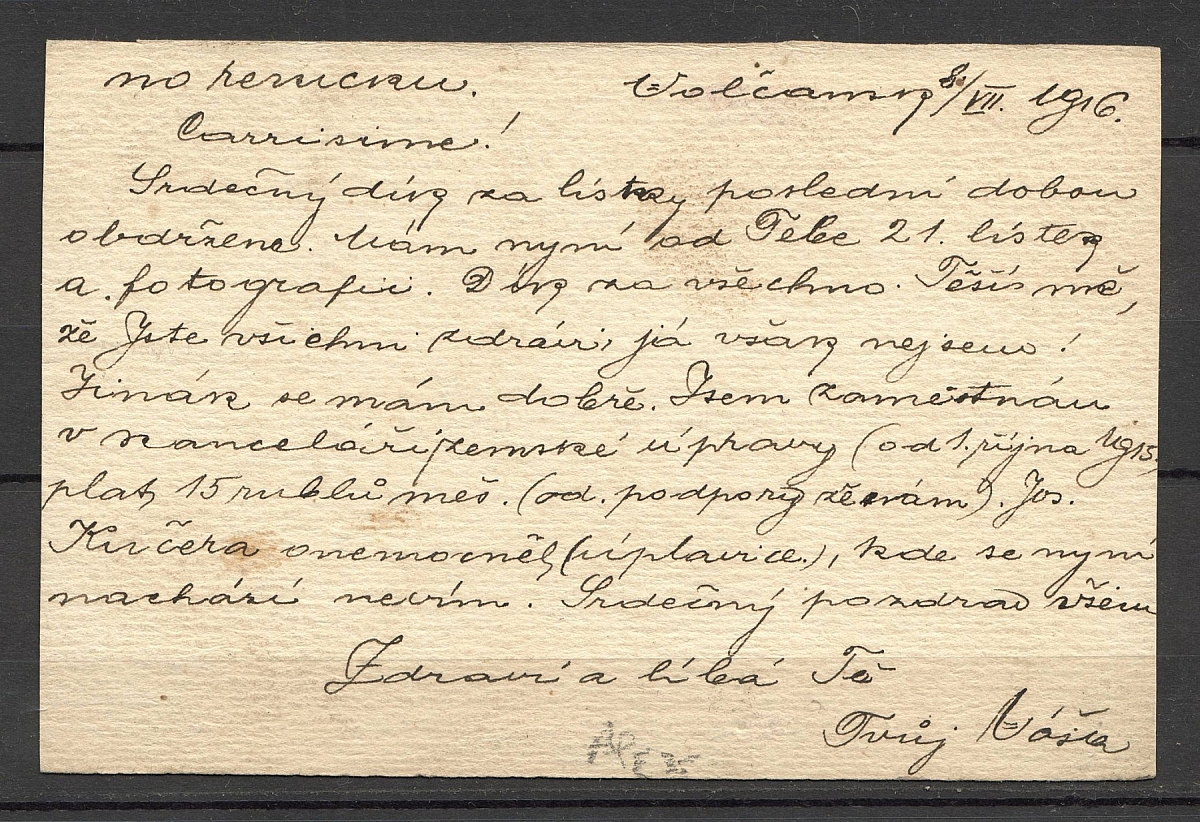 Volčansk 8/VII. 1916.
Carrisime!
Srdečný dík za lístky poslední dobou
obdržené. Mám nyní od Tebe 21. lístek
a. fotografii. Dík za všechno. Těší mě,
že Jste všichni zdrávi, já však nejsem!
Jinák se mám dobře. Jsem zaměstnán
v kanceláři zemské úpravy (od 1. října 1915,
plat 15 rublů měs. (od. podpory ). Jos.
Kučera onemocněl (úplavice.), kde se nyní
nachází nevím. Srdečný pozdrav všem
Zdraví a líbá Tě
Tvůj Váša